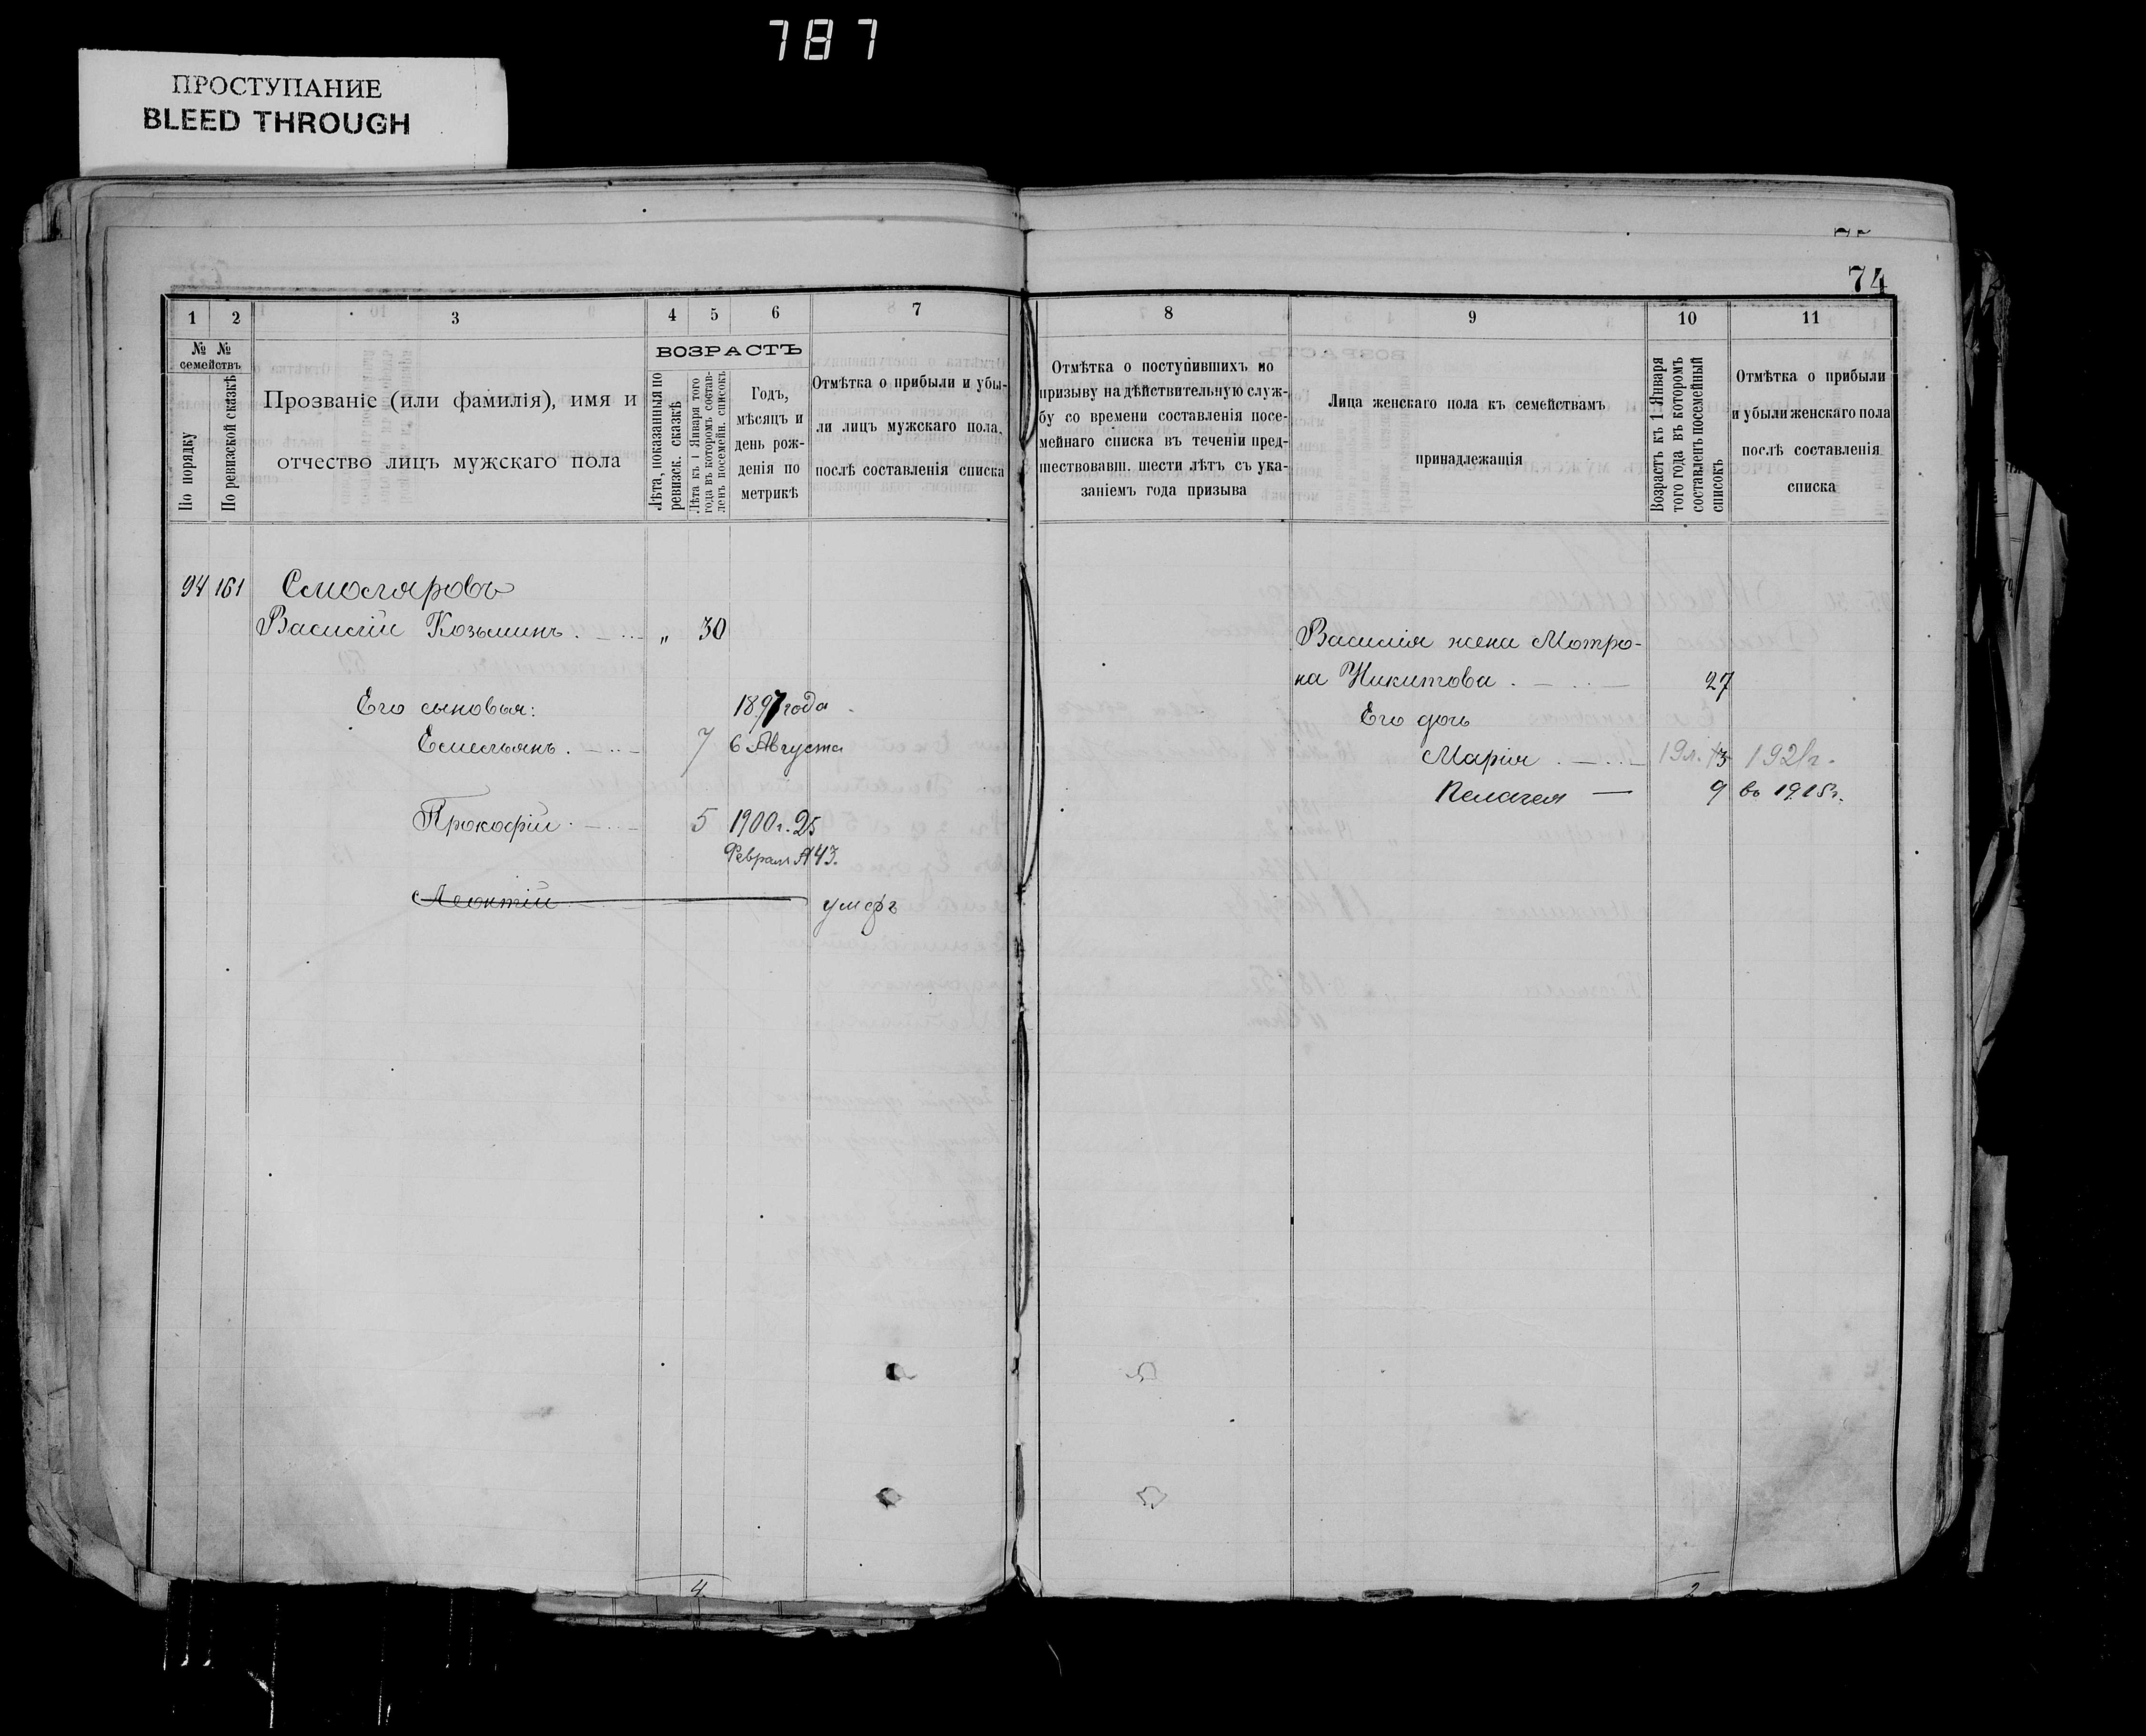 787
ПРОСТУПАНИЕ
BLEED THROUGH
74
1 2 3 4 5 6 7 8 9 10 11
№ №
семействъ
По порядку
По ревизской сказкѣ
Прозваніе (или фамилія), имя и
отчество лицъ мужскаго пола
ВОЗРАСТЪ
Лѣта, показанныя по
ревизск. сказкѣ
Лѣта къ 1 Января того
года въ которомъ состав-
ленъ посемейн. списокъ
Годъ,
мѣсяцъ и
день рож-
денія по
метрикѣ
Отмѣтка о прибыли и убы-
ли лицъ мужскаго пола,
послѣ составленія списка
Отмѣтка о поступившихъ по
призыву на дѣйствительную служ-
бу со времени составленія посе-
мейнаго списка въ теченіи пред-
шествовавш. шести лѣтъ съ ука-
заніемъ года призыва
Лица женскаго пола къ семействамъ
принадлежащія
Возрастъ къ 1 Января
того года въ которомъ
составленъ посемейный
списокъ
Отмѣтка о прибыли
и убыли женскаго пола
послѣ составленія
списка
94 161 Смоляровъ
Василій Козьминъ „ 30
Его сыновья: 1897 года
Емельянъ 7 6 Августа
Прокофій 5 1900 г. 25
Февраля №43.
Леонтій умеръ
Василія жена Мотро-
на Никитова 27
Его дочь
Марія 19л. 13 1921г.
Пелагея — 9 въ 1915г.
4
2